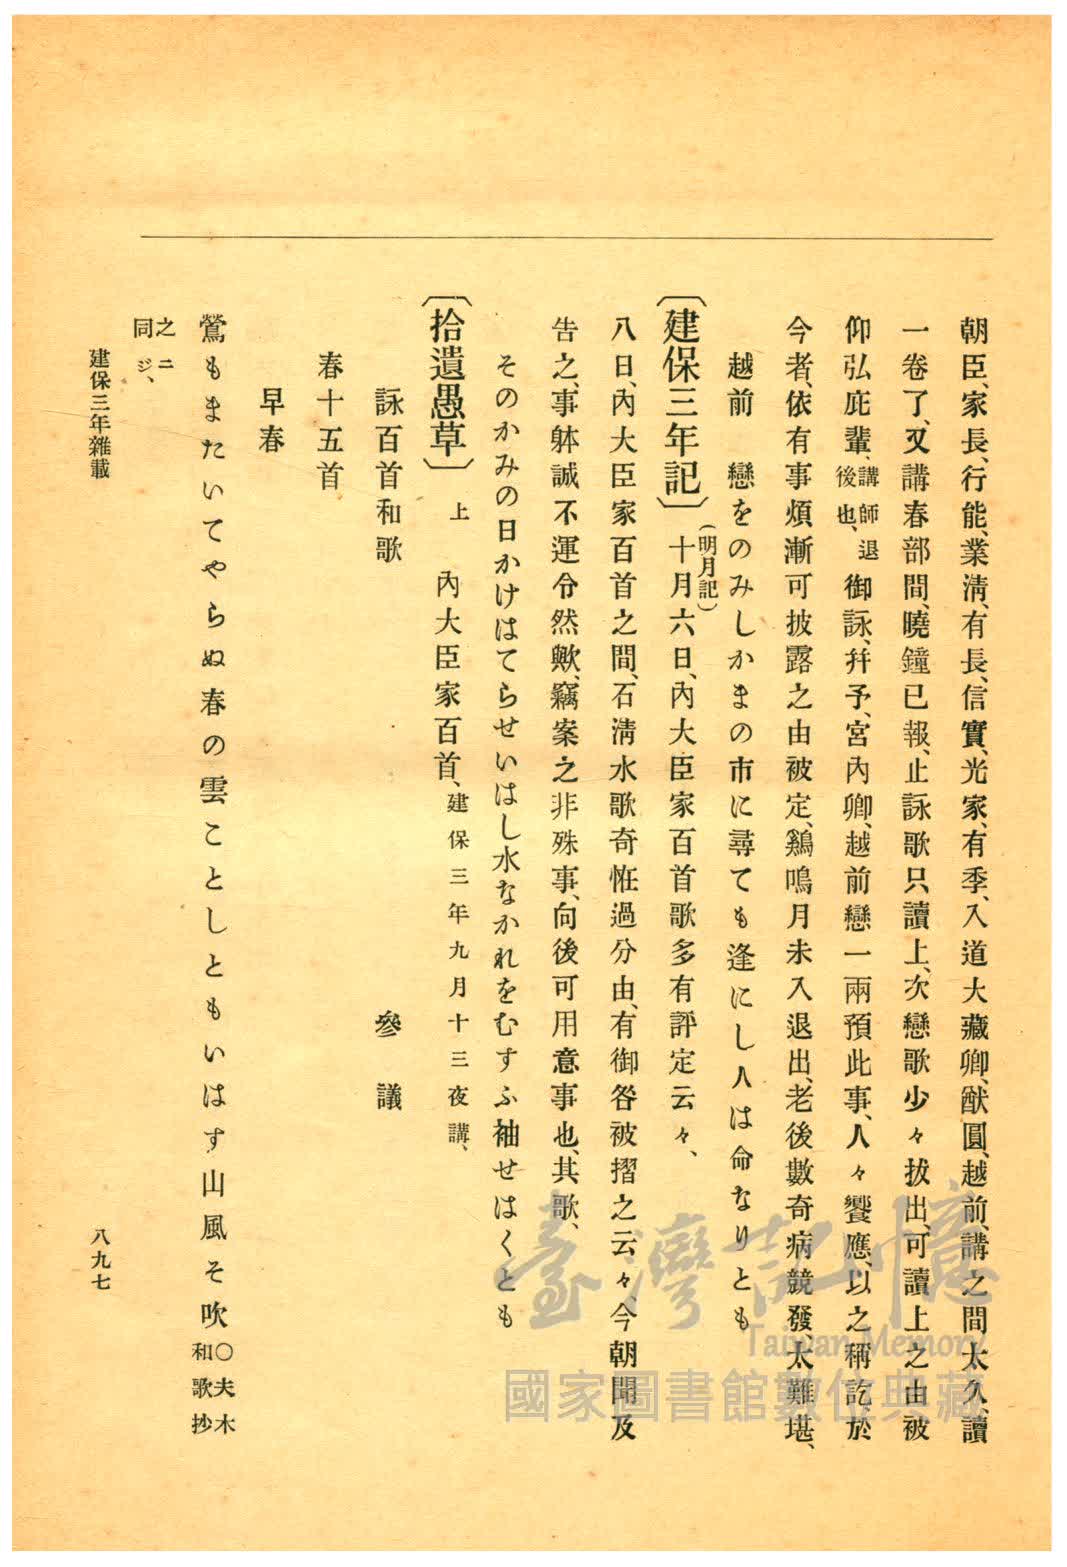 朝臣、家長、行能、業淸、有長、信實、光家、有季、入道大藏卿、猷圓、越前、講之間太久、讀
一卷了、又講春部間、曉鐘已報、止詠歌只讀上、次戀歌少々拔出、可讀上之由被
仰弘庇輩、講師退後也、御詠、幷予、宮內卿、越前戀一兩預此事、人々饗應、以之稱訖、於
今者、依有事煩漸可披露之由被定、鷄鳴月未入退出、老後數奇病競發、太難堪、
越前　戀をのみしかまの市に尋ても逢にし人は命なりとも
〔建保三年記〕(明月記)十月六日、內大臣家百首歌多有評定云々、
八日、內大臣家百首之間、石淸水歌奇恠過分由、有御咎被摺之云々、今朝聞及
告之、事躰誠不運令然歟、竊案之非殊事、向後可用意事也、其歌、
そのかみの日かけはてらせいはし水なかれをむすふ袖せはくとも
〔拾遺愚草〕上　內大臣家百首、建保三年九月十三夜講、
詠百首和歌　參議
春十五首
早春
鶯もまたいてやらぬ春の雲ことしともいはす山風そ吹〇夫木和歌抄
之ニ同ジ、
建保三年雜載
八九七
臺灣記憶
Taiwan Memory
國家圖書館數位典藏